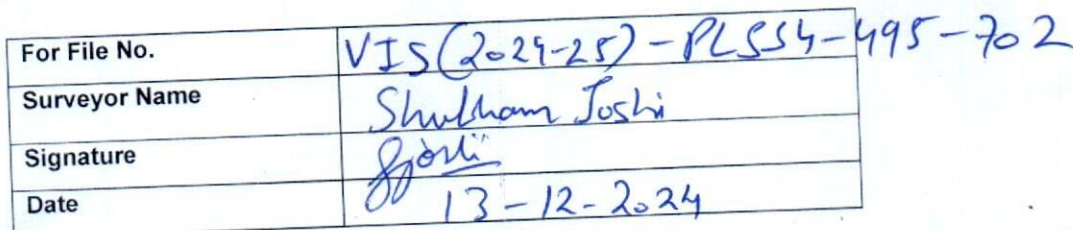 For File No. VIS(2024-25)-PL554-495-702
Surveyor Name Shubham Joshi
Signature SJoshi
Date 13-12-2024